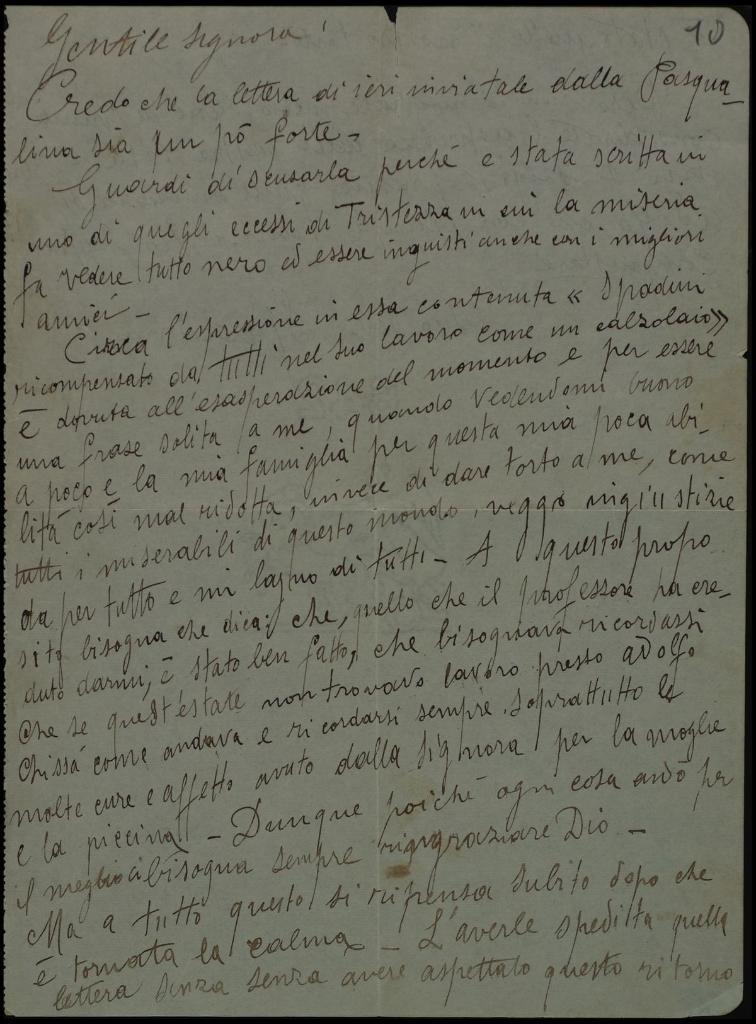 10
Gentile signora!
Credo che la lettera di ieri inviatale dalla Pasqua-
lina sia un pò forte-
Guardi di scusarla perché e stata scritta in
uno di quegli eccessi di Tristezza in cui la miseria
fa vedere tutto nero ed essere ingiusti anche con i migliori
amici-
Circa l'espressione in essa contenuta « Spadini
ricompensato da tutti nel suo lavoro come un calzolaio»
è dovuta all'esasperazione del momento e per essere
una frase solita a me, quando vedendomi buono
a poco e la mia famiglia per questa mia poca abi-
lità così mal ridotta, invece di dare torto a me, come
tutti i miserabili di questo mondo, veggo ingiustizie
da per tutto e mi lagno di tutti- A questo propo
sito bisogna che dica: che, quello che il professore ha cre-
duto darmi, è stato ben fatto, che bisognava ricordassi
che se quest'estate non trovavo lavoro presso adolfo
chissà come andava e ricordarsi sempre soprattutto le
molte cure e affetto avuto dalla signora per la moglie
e la piccina- Dunque poiché ogni cosa andò per
il meglio ci bisogna sempre ringraziare Dio-
Ma a tutto questo si ripensa subito dopo che
è tornata la calma- L'averle spedita quella
lettera senza senza avere aspettato questo ritorno